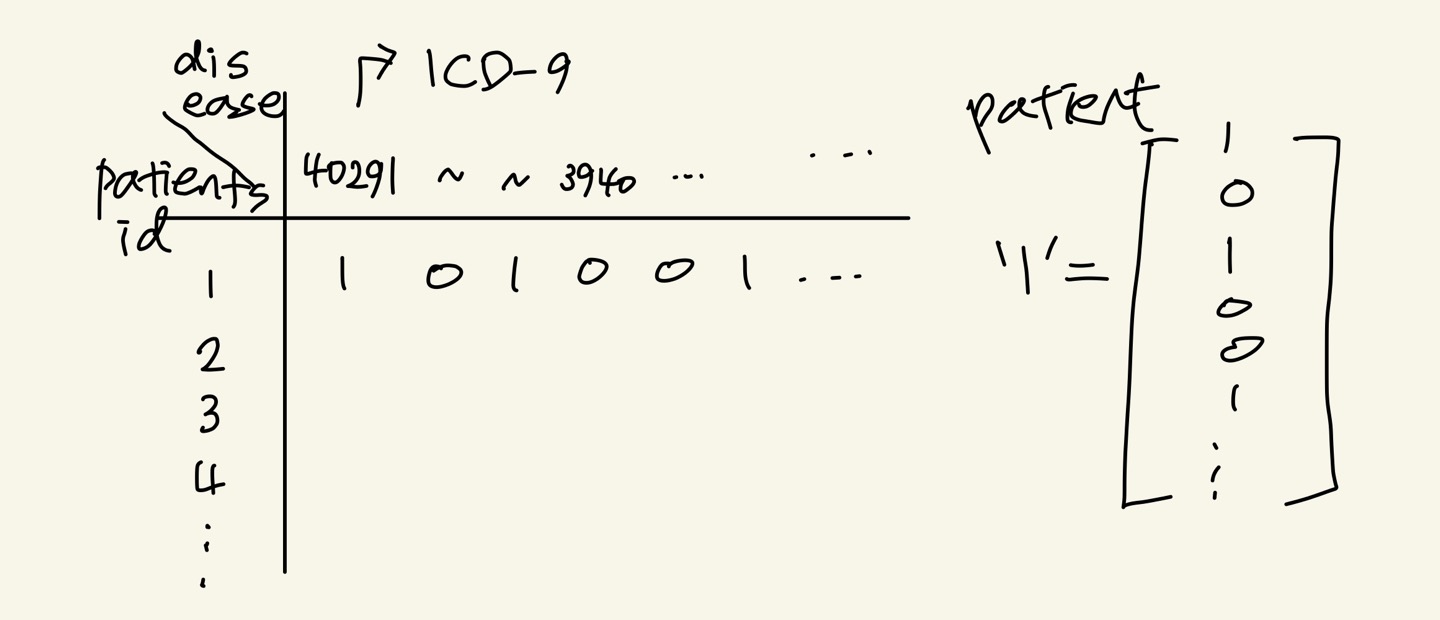 dis
ease
ICD-9
patients
id
40291 ~ ~ 3940 ... ...
1 1 0 1 0 0 1 ...
2
3
4
⋮
patient
'1' =
1
0
1
0
0
1
⋮